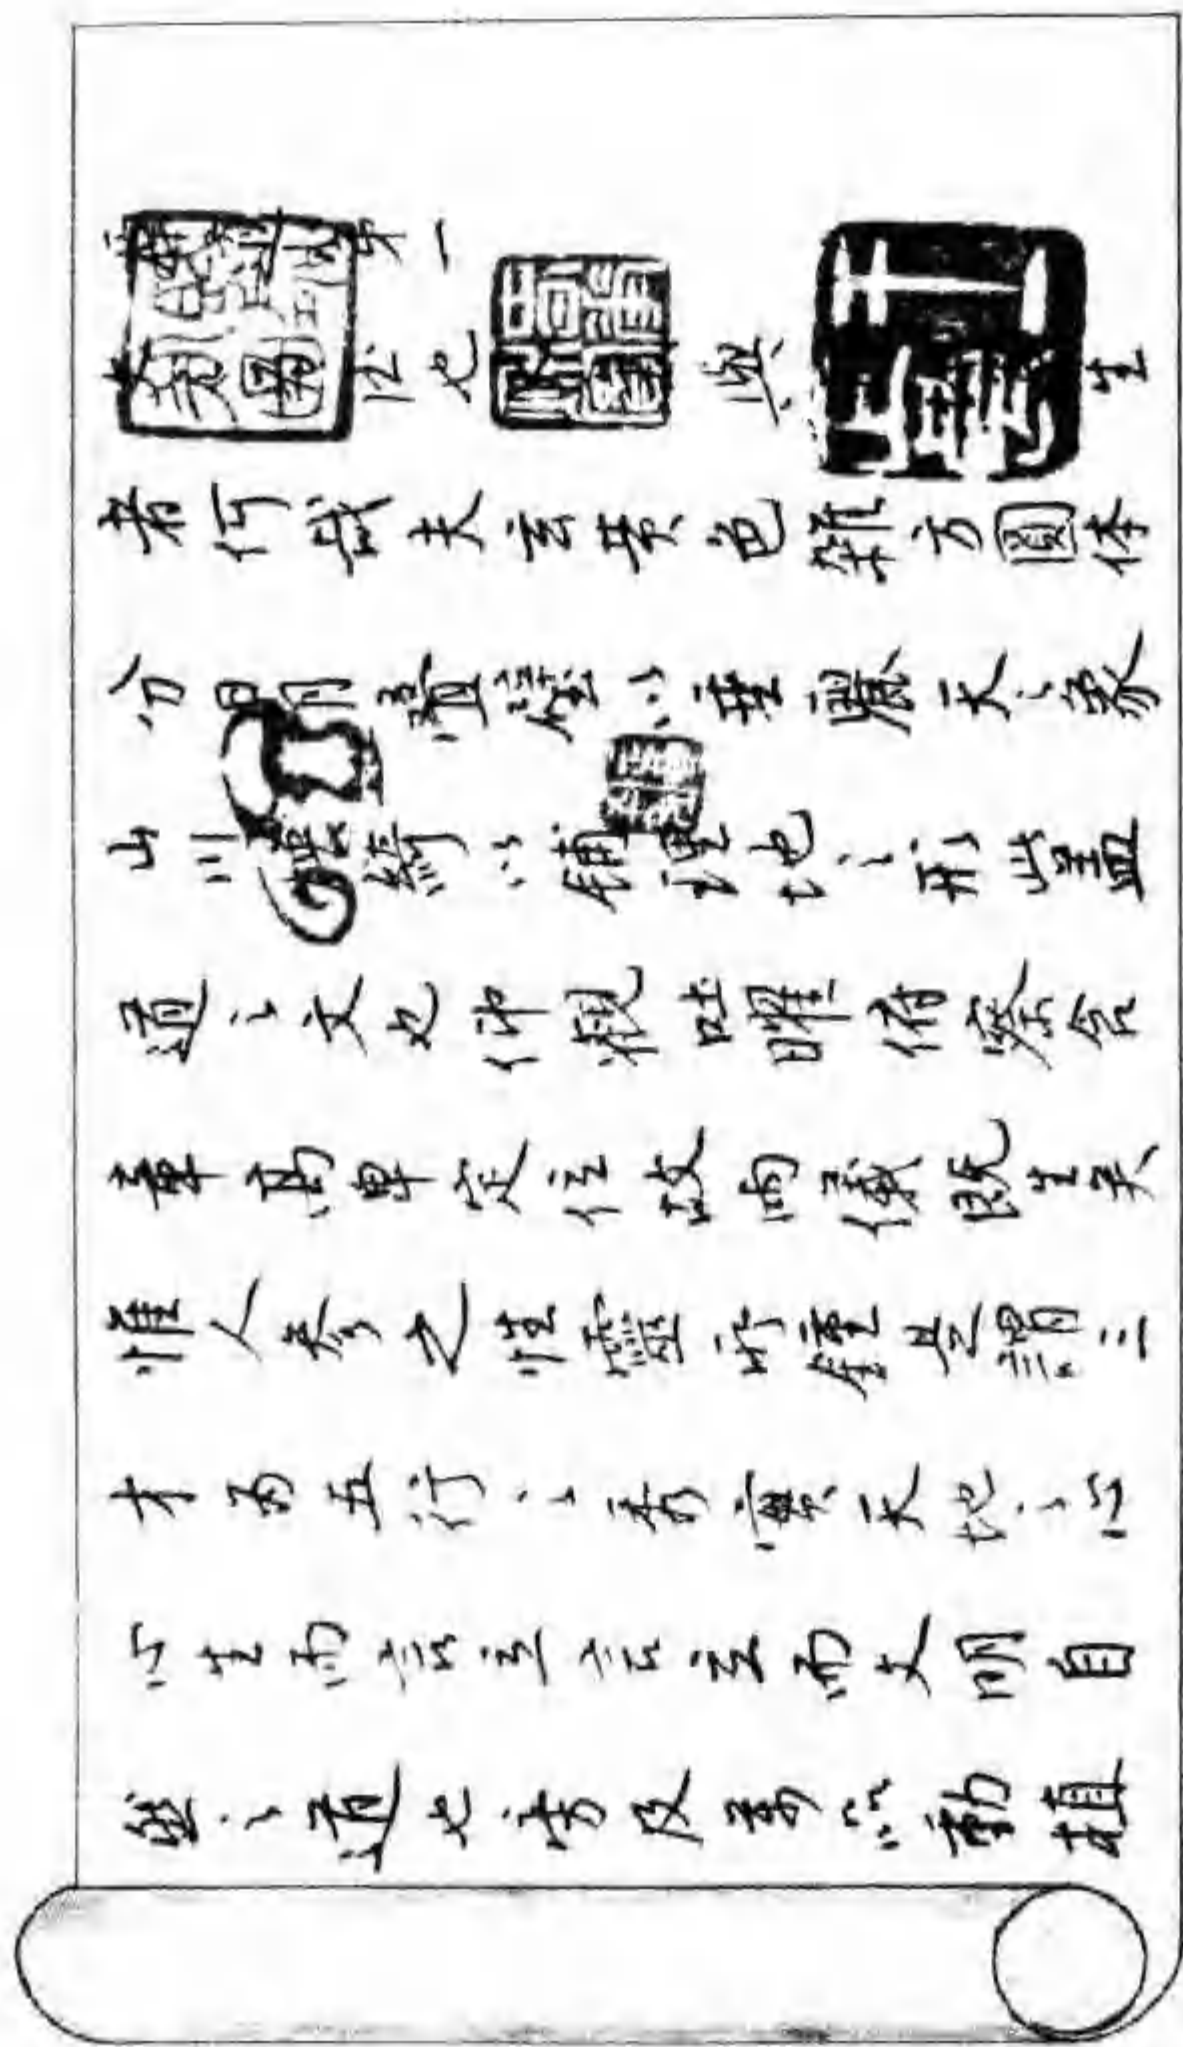 第一
也 與 生
者何哉夫玄黄色雜方圓体
分日月疊璧以垂麗天之象
山川煥綺以鋪理地之形此盖
道之文也仰觀吐曜俯察含
章高卑定位故兩儀既生矣
惟人參之性靈所鍾是謂三
才為五行之秀實天地之心
心生而言立言立而文明自
然之道也傍及萬品動植